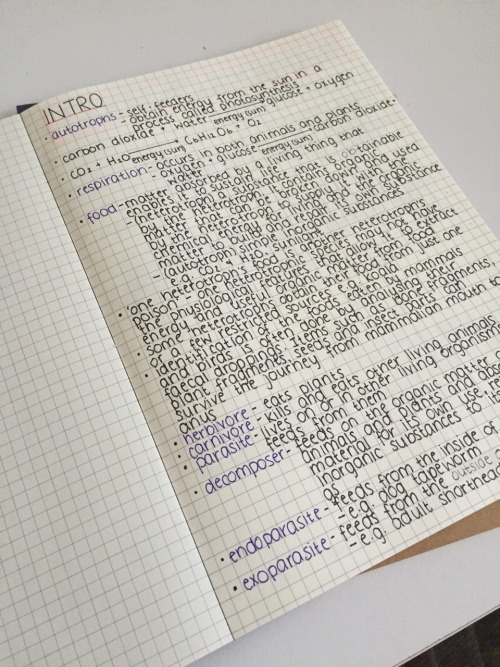 INTRO
• autotrophs - self-feeders
- obtain energy from the sun in a
process called photosynthesis
carbon dioxide + water energy (sun) glucose + oxygen
• CO2 + H2O energy (sun) C6H12O6 + O2
• respiration - occurs in both animals and plants
- oxygen + glucose energy (sun) carbon dioxide +
water
• food - matter absorbed by a living thing that
enables it to sustain life
- (heterotroph) a substance that is obtainable
by the heterotroph, it contains organic
matter that can be broken down and used
by the heterotroph to supply it with the
chemical energy for living and the organic
matter to build and repair its own substance
- (autotroph) simple inorganic substances
e.g. CO2, H2O, sunlight
• 'one heterotroph's food is another heterotroph's
poison' - a heterotrophic species may not have
the physiological features that allow it to extract
energy and useful organic matter from food
• some heterotrophs obtain their food from just one
or a few restricted sources e.g. koala
• identification of the foods eaten by mammals
and birds is often done by analysing their
faecal droppings. Items such as bone fragments,
plant fragments, seeds and insect parts can
survive the journey from mammalian mouth to
anus
• herbivore - eats plants
• carnivore - kills and eats other living animals
• parasite - lives on or in other living organisms
feeds from them
• decomposer - feeds on the organic matter
animals and plants and
material for its own use
inorganic substances to
• endoparasite - feeds from the inside of
- e.g. dog tapeworm
• exoparasite - feeds from the outside
- e.g. adult